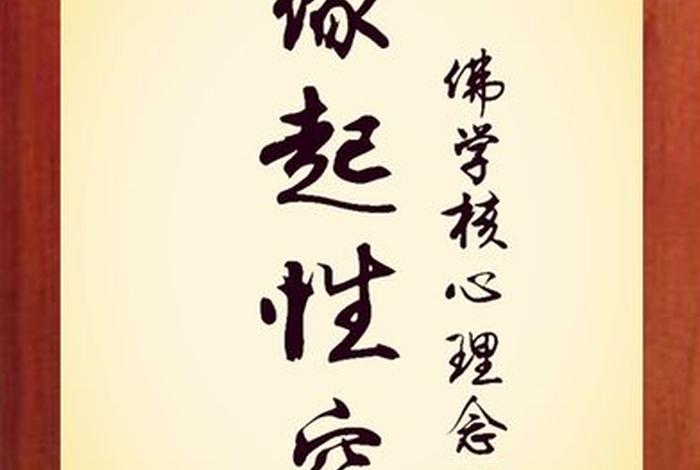 佛学核心理念
缘起性空